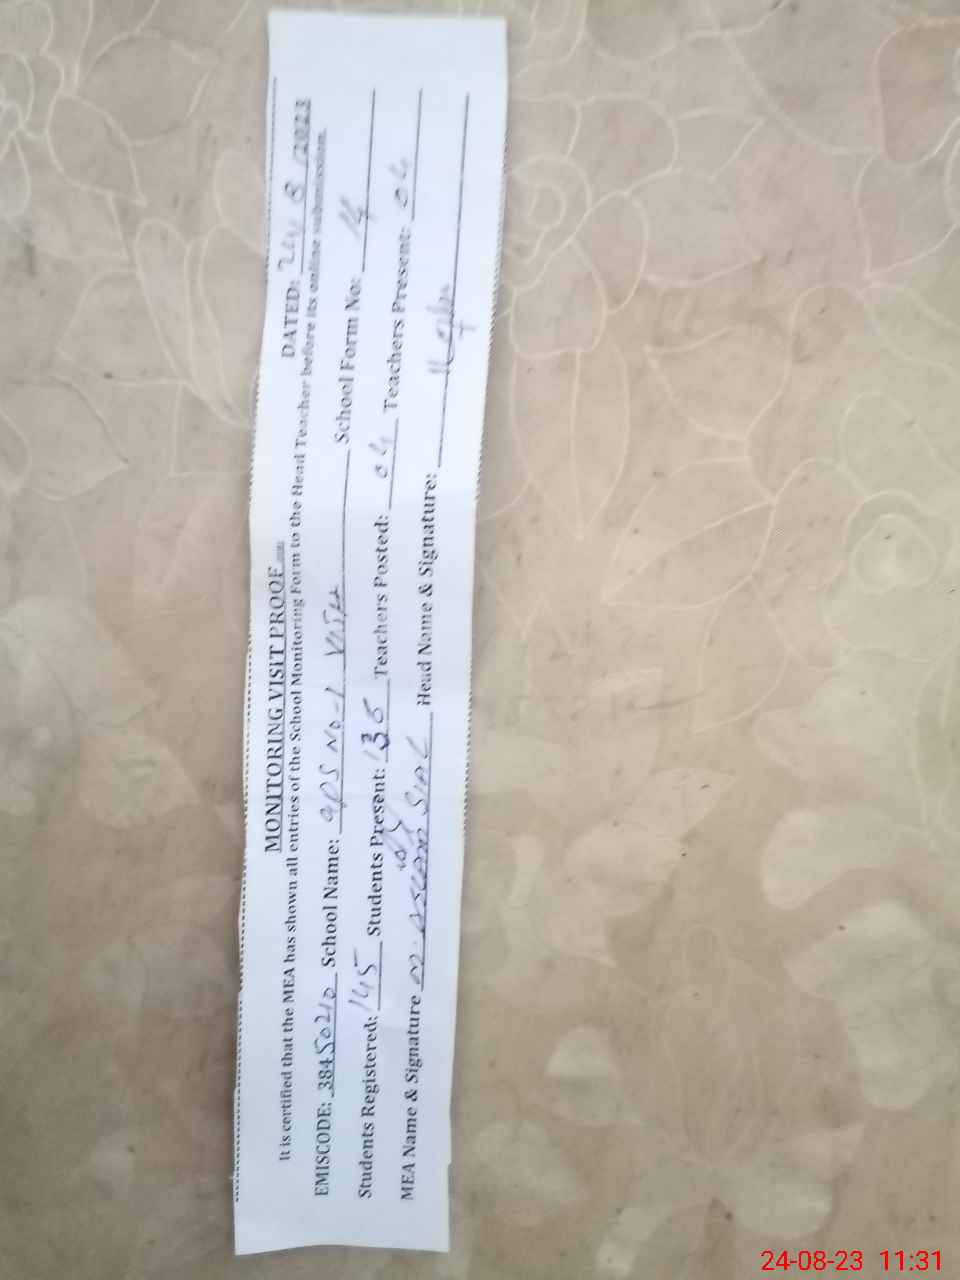 MONITORING VISIT PROOF
DATED: 24/8/2023
It is certified that the MEA has shown all entries of the School Monitoring Form to the Head Teacher before its online submission.
EMISCODE: 38450210 School Name: GPS No-1 School Form No: 14
Students Registered: 145 Students Present: 136 Teachers Posted: 04 Teachers Present: 04
MEA Name & Signature M. ASLAM SIAL Head Name & Signature:
24-08-23 11:31